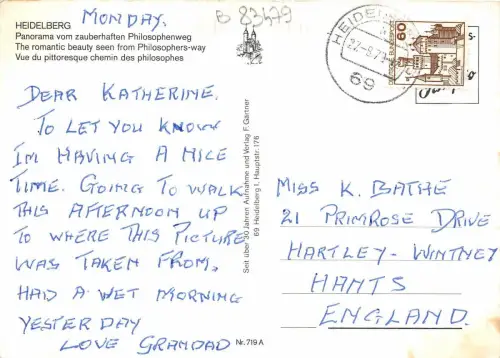 MONDAY.
B 83479
HEIDELBERG
Panorama vom zauberhaften Philosophenweg
The romantic beauty seen from Philosophers-way
Vue du pittoresque chemin des philosophes
DEAR KATHERINE.
TO LET YOU KNOW
IM HAVING A NICE
TIME. GOING TO WALK
THIS AFTERNOON UP
TO WHERE THIS PICTURE
WAS TAKEN FROM.
HAD A WET MORNING
YESTERDAY
LOVE GRANDAD
Seit über 30 Jahren Aufnahme und Verlag F. Gärtner
69 Heidelberg 1, Hauptstr. 176
Nr. 719 A
69
60
MISS K. BATHE
21 PRIMROSE DRIVE
HARTLEY-WINTNEY
HANTS
ENGLAND.